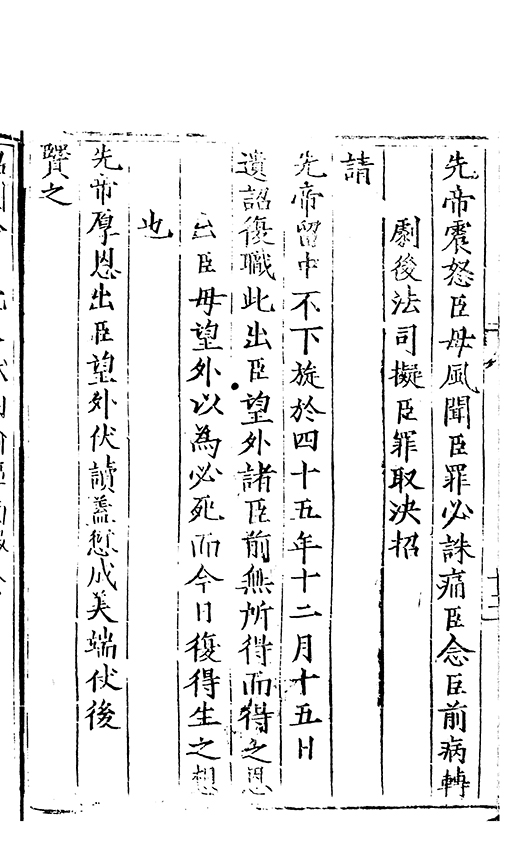 先帝震怒臣母風聞臣罪必誅痛臣念臣前病轉
劇後法司擬臣罪取決招
請
先帝留中不下旋於四十五年十二月十五日
遺詔復職此出臣望外諸臣前無所得而得之恩
出臣母望外以為必死而今日復得生之想
也
先帝厚恩出臣望外伏讀蓋愆成美端伏後
賢之